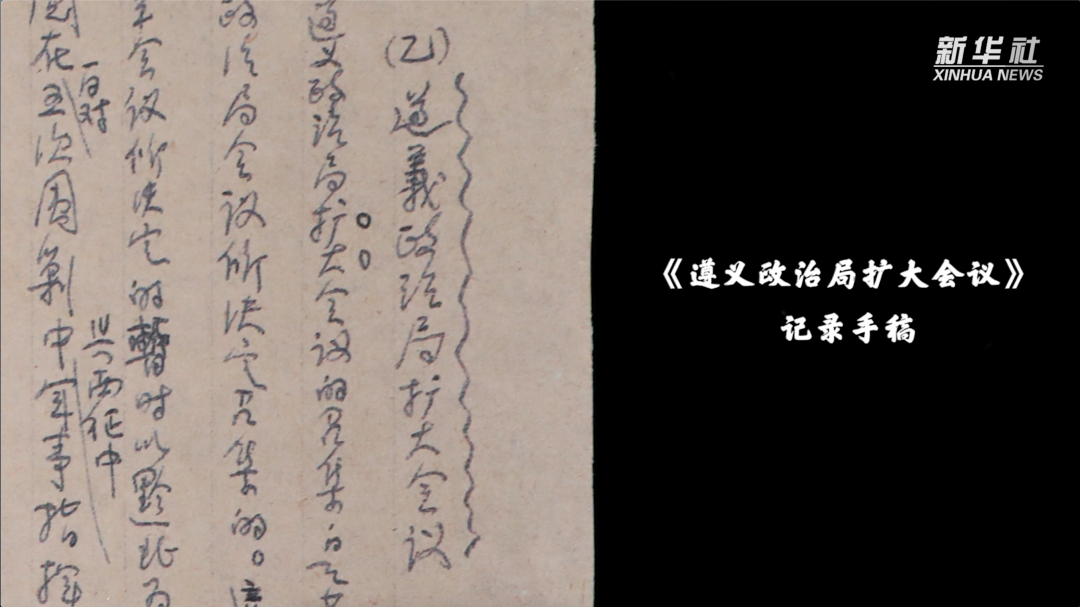 新华社
XINHUA NEWS
(乙)遵義政治局扩大会议
遵义政治局扩大会议的召集
政治局会议所决定召集的。
会议所决定的暫时以黔北为
在五次围剿中军事指挥
与西征中
《遵义政治局扩大会议》
记录手稿